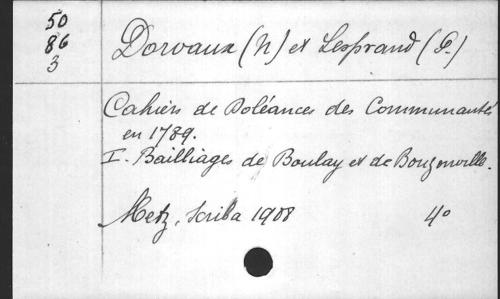 50
86
3
Dorvaux (N) et Lesprand (P.)
Cahiers de Doléances des Communautés
en 1789.
I. Bailliages de Boulay et de Bouzonville.
Metz, Scriba 1908 4°